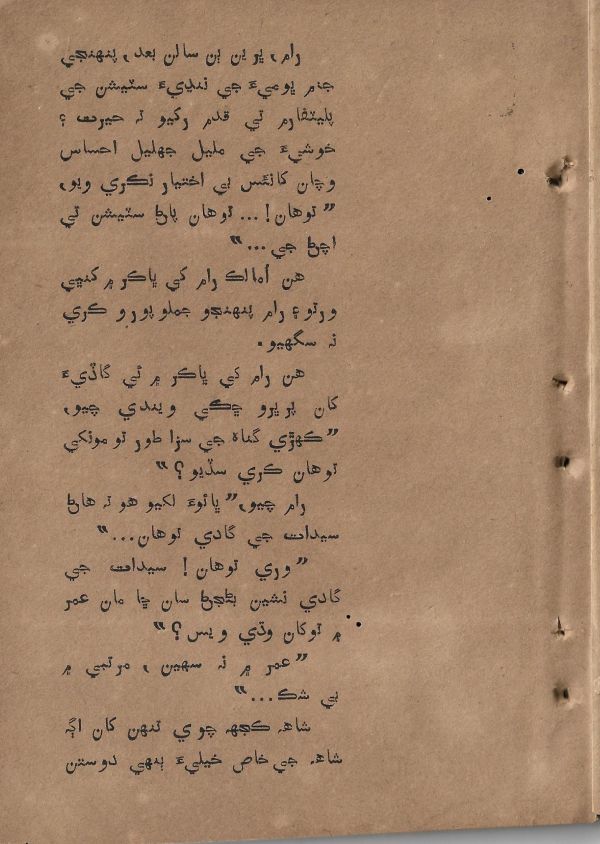 رام، پرين ٻن سالن بعد، پنهنجي
جنم ڀوميءَ جي ننڍيءَ سٽيشن جي
پليٽفارم تي قدم رکيو تہ حيرت ۽
خوشيءَ جي مليل جهليل احساس
وچان کانئس بي اختيار نڪري ويو،
”توهان! ... توهان پاڻ سٽيشن تي
اچڻ جي...“
هن اُمالڪ رام کي ڀاڪر ۾ کنڀي
ورتو ۽ رام پنهنجو جملو پورو ڪري
نہ سگهيو.
هن رام کي ڀاڪر ۾ ئي گاڏيءَ
کان پرڀرو ڇڪي ويندي چيو،
”ڪهڙي گناھ جي سزا طور تو مونکي
توهان ڪري سڏيو؟“
رام چيو، ”ڀائوءَ لکيو هو تہ هاڻ
سيدات جي گادي توهان...“
”وري توهان! سيدات جي
گادي نشين بڻجڻ سان ڇا مان عمر
۾ توکان وڏي ويس؟“
”عمر ۾ نہ سهين، مرتبي ۾
بي شڪ...“
شاھہ ڪجهہ چوي تنهن کان اڳہ
شاھہ جي خاص خيليءَ ٻنهي دوستن